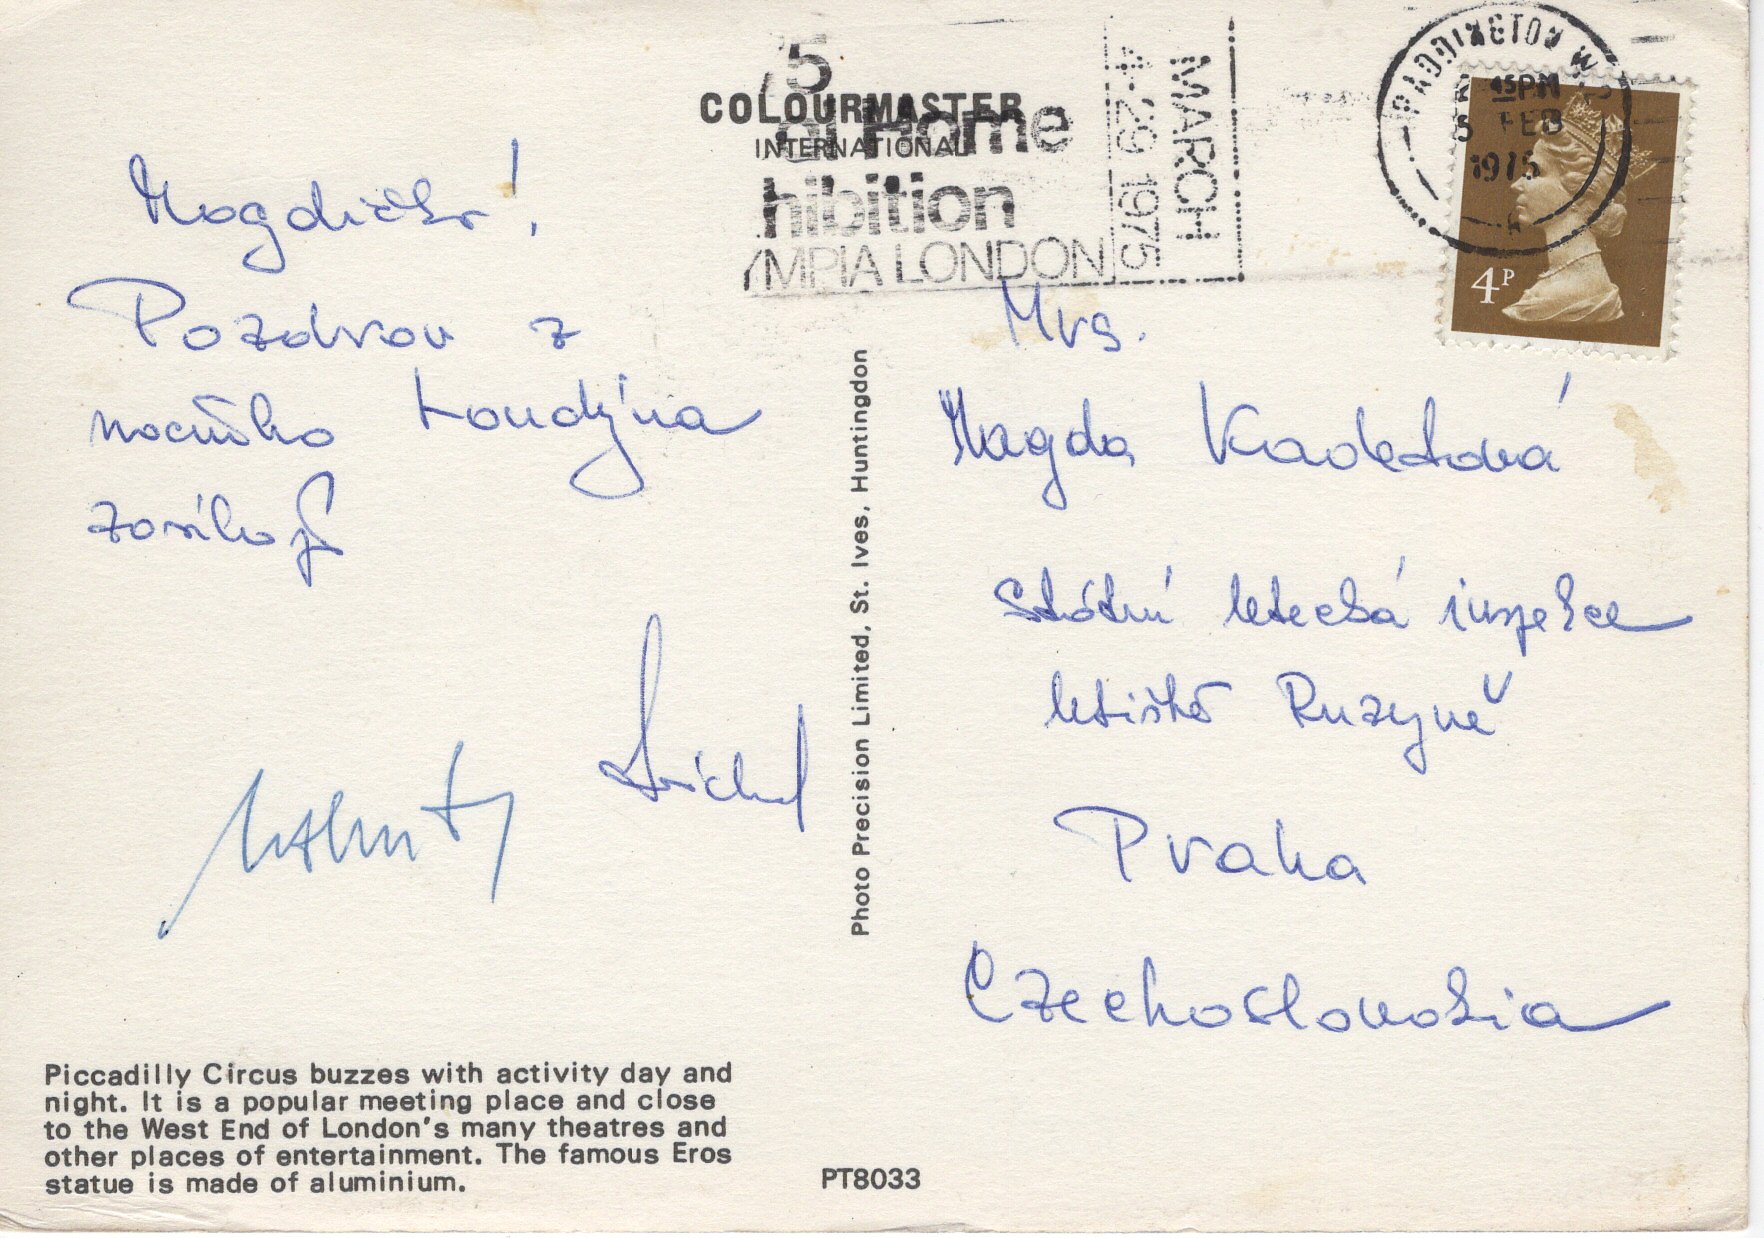 COLOURMASTER
INTERNATIONAL
75
al Home
hibition
YMPIA LONDON
MARCH
4-29 1975
PADDINGTON W
45PM
5 FEB
1975
4P
Magdičko!
Pozdrav z
nočního Londýna
zasílají
Mrs.
Magda Kadletová
Státní letecká inspekce
letiště Ruzyně
Praha
Czechoslovakia
Photo Precision Limited, St. Ives, Huntingdon
Piccadilly Circus buzzes with activity day and
night. It is a popular meeting place and close
to the West End of London's many theatres and
other places of entertainment. The famous Eros
statue is made of aluminium.
PT8033